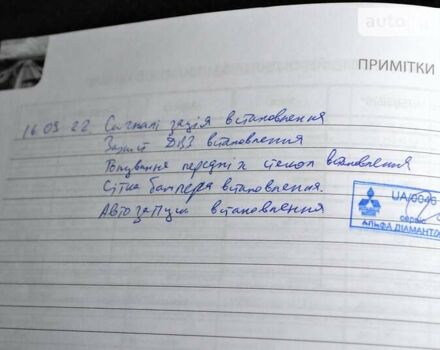 auto
ПРИМІТКИ
16.09.22 Сигналізація встановлення
Захист ДВЗ встановлення
Тонування передніх стекол встановлення
Сітка бампера встановлення.
Автозапуск встановлення
UA/0046
сервіс
АЛЬФА ДІАМАНТ